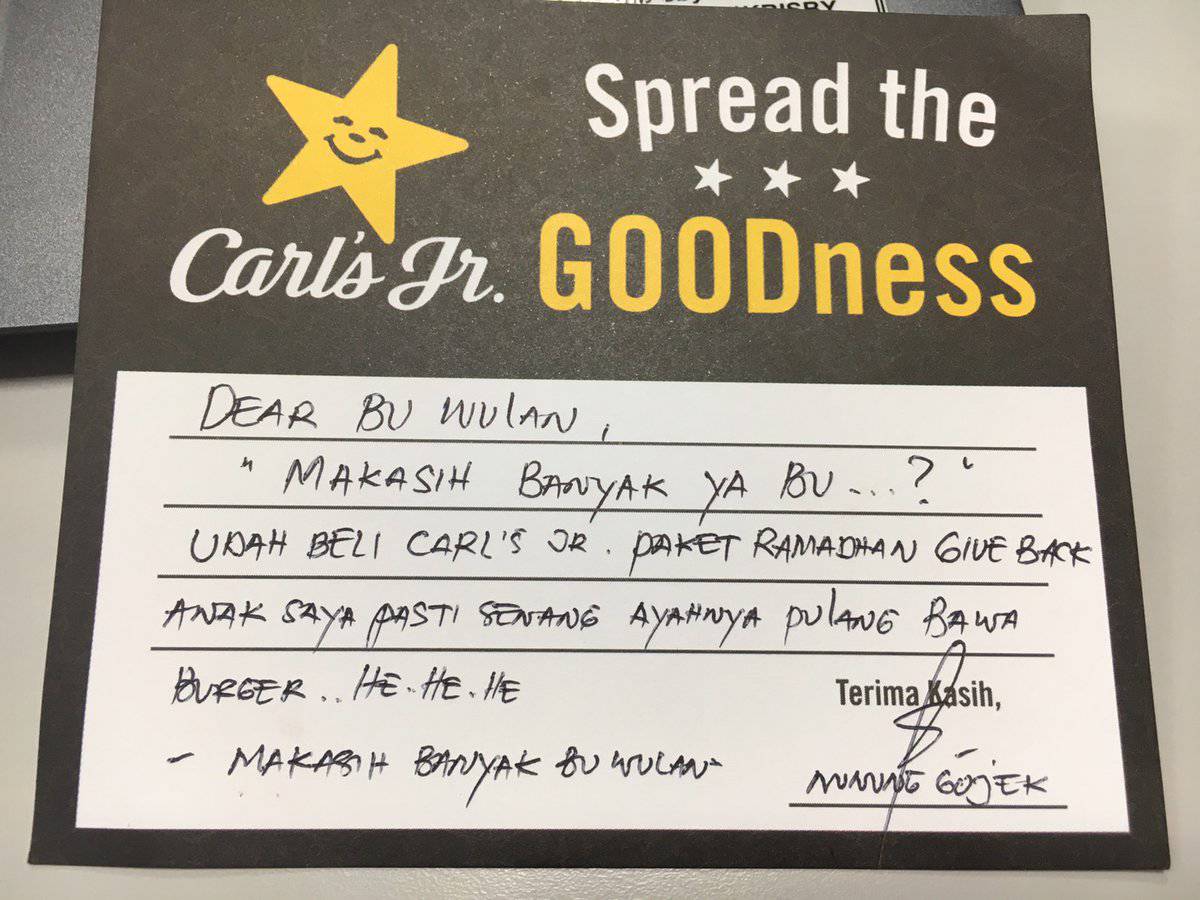 KRISBY
Spread the
Carl's Jr. GOODness
DEAR BU WULAN,
" MAKASIH BANYAK YA BU....? "
UDAH BELI CARL'S JR. PAKET RAMADHAN GIVE BACK
ANAK SAYA PASTI SENANG AYAHNYA PULANG BAWA
BURGER.. HE.HE.HE
Terima Kasih,
- MAKASIH BANYAK BU WULAN-
NUNUNG GOJEK